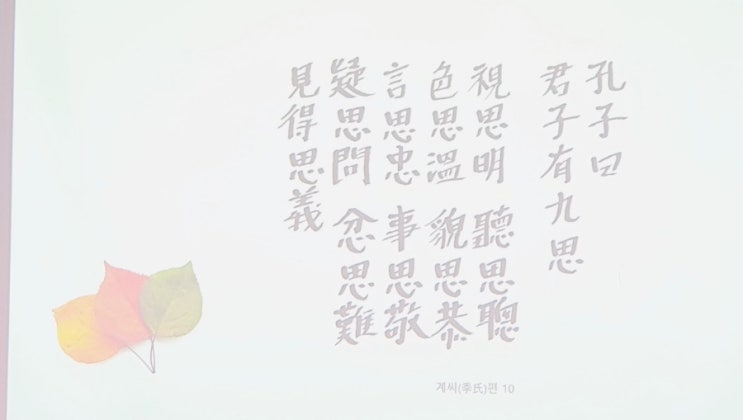 孔子曰
君子有九思
視思明 聽思聰
色思溫 貌思恭
言思忠 事思敬
疑思問 忿思難
見得思義
계씨(季氏)편 10